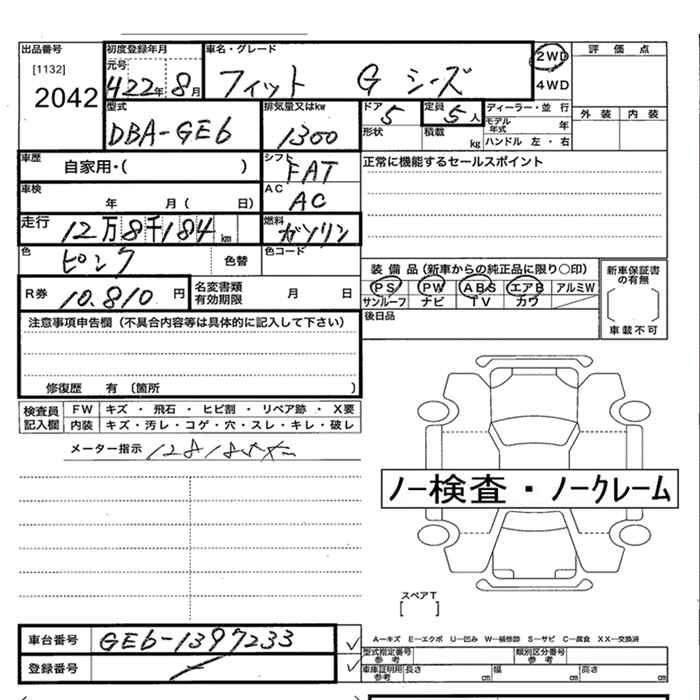 出品番号 初度登録年月 車名・グレード 評価点
[1132] 元号 2WD
2042 H22年 8月 フィット G シーズ 4WD
型式 排気量又はkw ドア 定員 ディーラー・並行 外装 内装
DBA-GE6 1300 5 5人 モデル年式 年
形状 積載 kg ハンドル 左・右
車歴 自家用・( ) シフト FAT 正常に機能するセールスポイント
車検 年 月( 日) AC AC
走行 12万8千184km 燃料 ガソリン
色 ピンク 色替 色コード
装備品(新車からの純正品に限り○印) 新車保証書の有無
R券 10.810円 名変書類有効期限 月 日 PS PW ABS エアB アルミW
サンルーフ ナビ TV カワ
注意事項申告欄(不具合内容等は具体的に記入して下さい) 後日品 車載不可
修復歴 有 (箇所 )
検査員記入欄 FW キズ・飛石・ヒビ割・リペア跡・X要
内装 キズ・汚レ・コゲ・穴・スレ・キレ・破レ
メーター指示
ノー検査・ノークレーム
スペアT
[ ]
車台番号 GE6-1397233 A-キズ E-エクボ U-凹み W-補修跡 S-サビ C-腐食 XX-交換済
型式指定番号 参考 類別区分番号 参考
登録番号 車庫証明用 参考 長さ cm 幅 cm 高さ cm